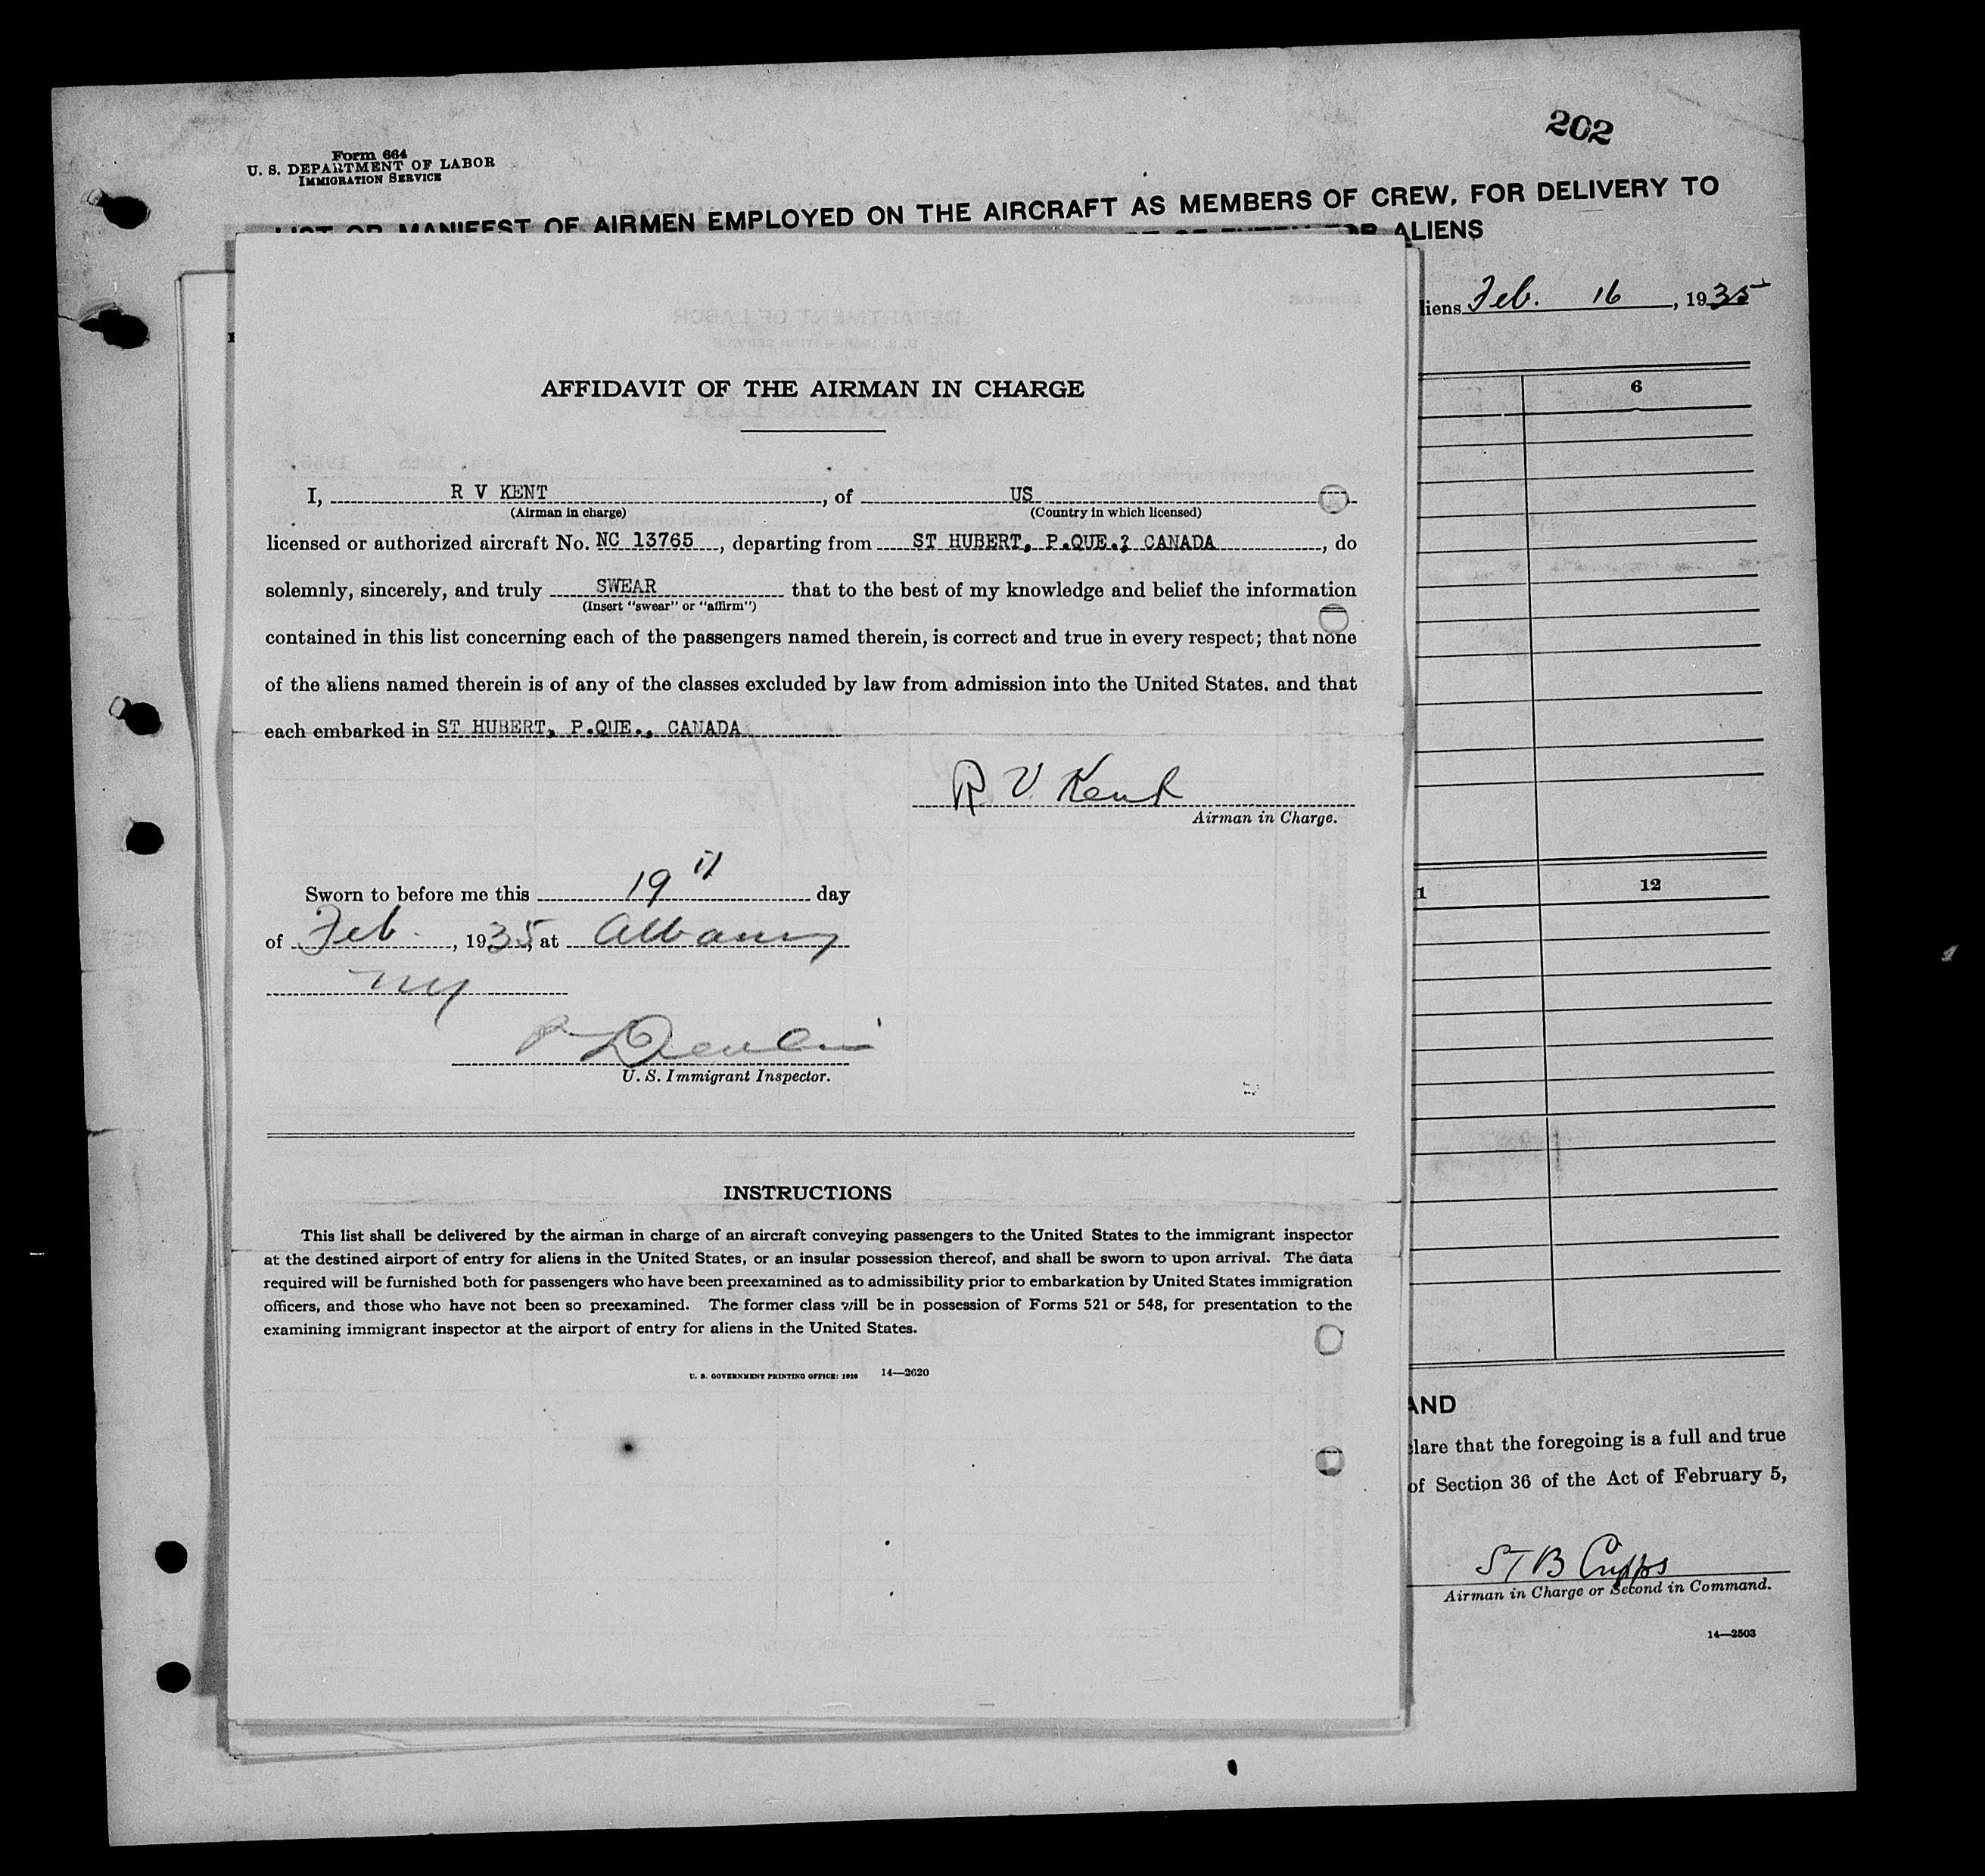 202
Form 664
U. S. DEPARTMENT OF LABOR
IMMIGRATION SERVICE
LIST OR MANIFEST OF AIRMEN EMPLOYED ON THE AIRCRAFT AS MEMBERS OF CREW, FOR DELIVERY TO
ALIENS
liens Feb. 16, 1935
6
AFFIDAVIT OF THE AIRMAN IN CHARGE
I, R V KENT, of US
(Airman in charge) (Country in which licensed)
licensed or authorized aircraft No. NC 13765, departing from ST HUBERT, P.QUE.? CANADA, do
solemnly, sincerely, and truly SWEAR that to the best of my knowledge and belief the information
(Insert "swear" or "affirm")
contained in this list concerning each of the passengers named therein, is correct and true in every respect; that none
of the aliens named therein is of any of the classes excluded by law from admission into the United States. and that
each embarked in ST HUBERT, P.QUE., CANADA
R V. Kent
Airman in Charge.
Sworn to before me this 19th day
of Feb., 1935, at Albany
NY
U. S. Immigrant Inspector.
1 12
INSTRUCTIONS
This list shall be delivered by the airman in charge of an aircraft conveying passengers to the United States to the immigrant inspector
at the destined airport of entry for aliens in the United States, or an insular possession thereof, and shall be sworn to upon arrival. The data
required will be furnished both for passengers who have been preexamined as to admissibility prior to embarkation by United States immigration
officers, and those who have not been so preexamined. The former class will be in possession of Forms 521 or 548, for presentation to the
examining immigrant inspector at the airport of entry for aliens in the United States.
U. S. GOVERNMENT PRINTING OFFICE: 1929 14—2620
AND
clare that the foregoing is a full and true
of Section 36 of the Act of February 5,
STB Cripps
Airman in Charge or Second in Command.
14—2503